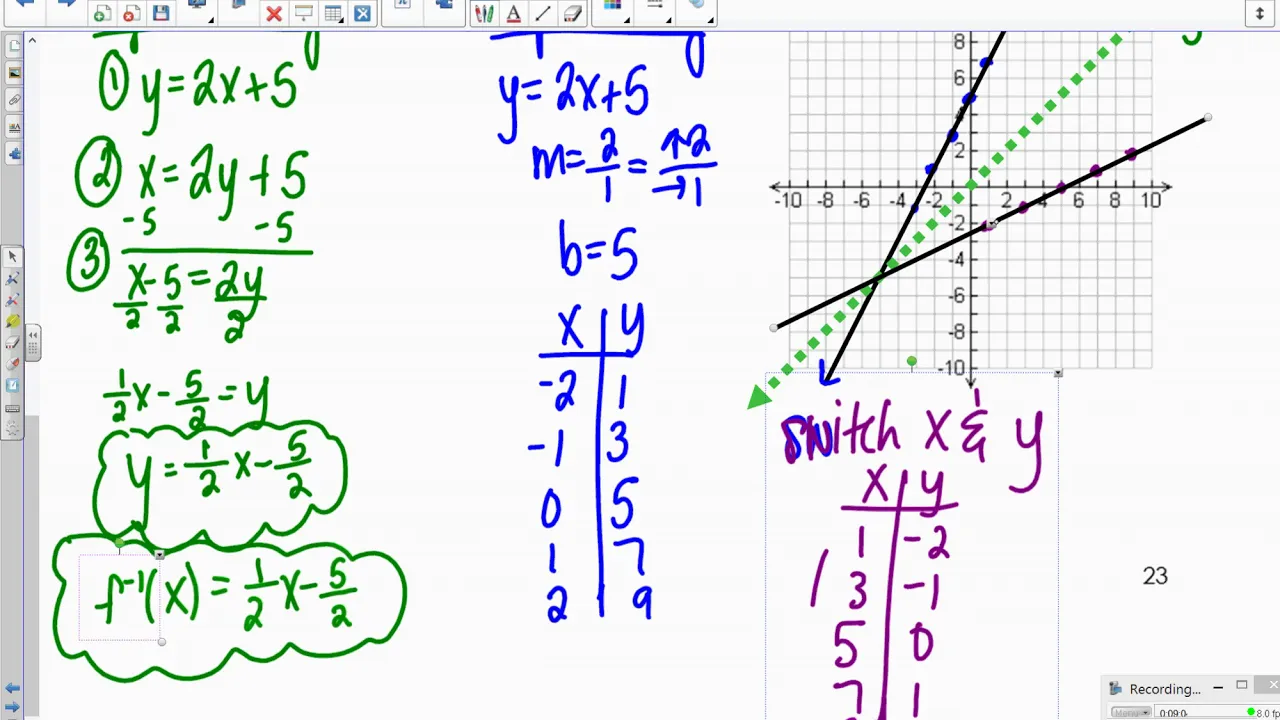 ① y=2x+5
② x=2y+5
-5 -5
③ x-5=2y
2 2 2
1/2x-5/2=y
y=1/2x-5/2
f⁻¹(x)=1/2x-5/2
y=2x+5
m=2/1=↑2/→1
b=5
x y
-2 1
-1 3
0 5
1 7
2 9
8
6
4
2
-10 -8 -6 -4 -2 2 4 6 8 10
-2
-4
-6
-8
-10
switch x & y
x y
1 -2
3 -1
5 0
7 1
23
Recording...
Menu 0:09:0 8.0 fp